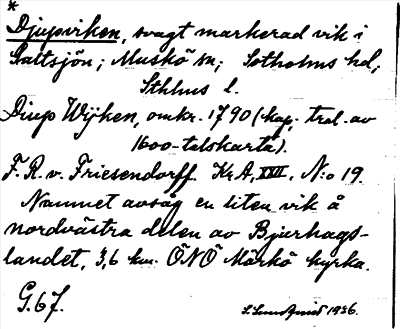 *
Djupviken, svagt markerad vik i
Saltsjön; Muskö sn; Sotholms hd;
Sthlms l.
Diup Wijken, omkr. 1790 (kop. trol. av
1600-talskarta).
F. R. v. Friesendorff KrA, XXII, N:o 19.
Namnet avsåg en liten vik å
nordvästra delen av Bjurhags-
landet, 3,6 km. ÖNÖ Mörkö kyrka.
G. 67.
1936.